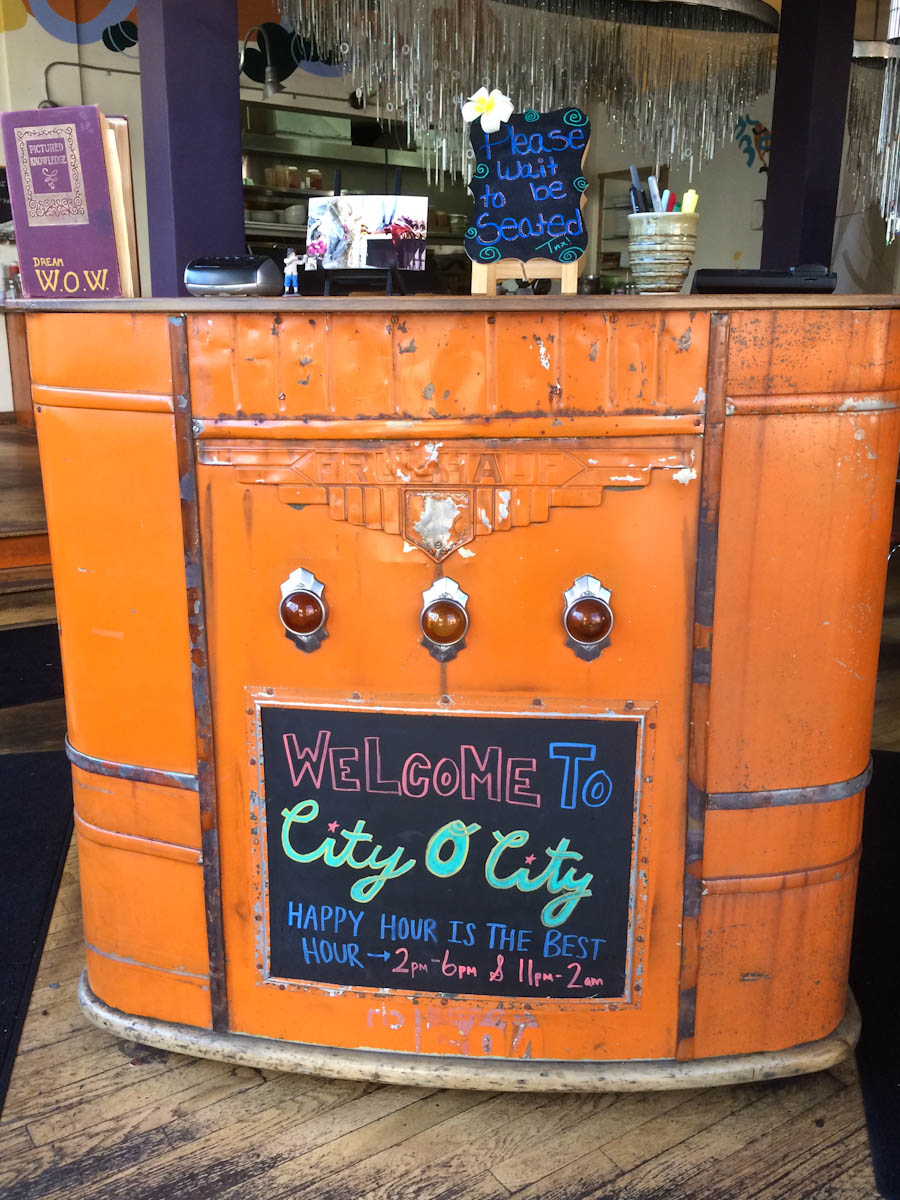 PICTURED
KNOWLEDGE
DREAM
W.O.W.
Please
Wait
to be
Seated
Tnx!
FRUEHAUF
WELCOME TO
City O' City
HAPPY HOUR IS THE BEST
HOUR → 2pm-6pm & 11pm-2am